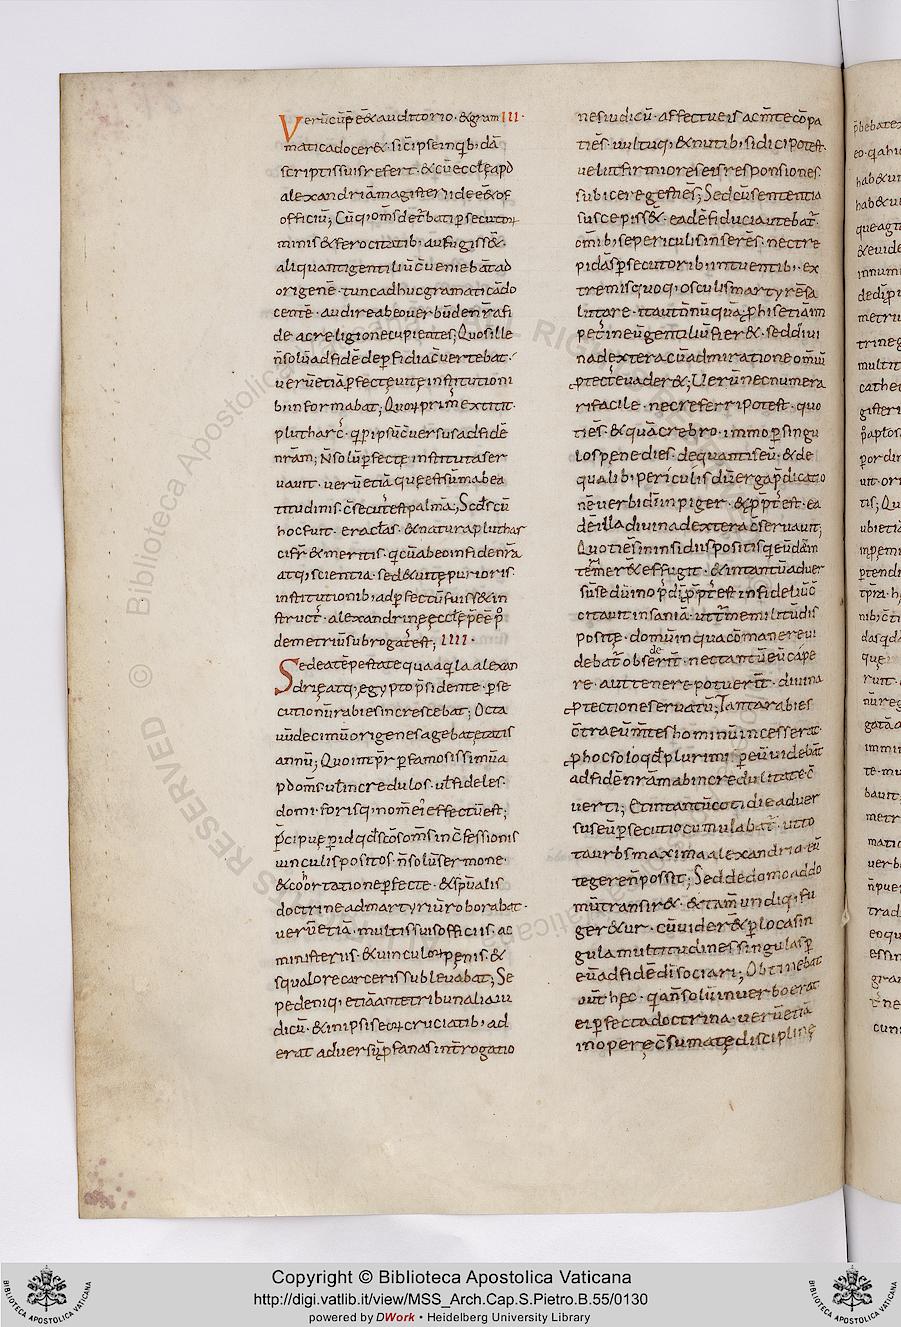 Verũ cũ p̃eẽt auditorio · & gram III ·
maticã docer& · sic̃ ipse in qb; dã
scriptis suis refert · & cũ eccłę apđ
alexandriã magisterii deẽ& of
officiũ; Cũq; om̃s det̃bati ꝑsecuton
minis & ferocitatib; aufugiss& ·
aliquanti gentiliũ c̃veniebãt ad
origenẽ · tunc adhuc gramaticã do
centẽ · audire ab eo verbũ dei nr̃a fi
dei ac religionẽ cupientes; Quos ille
ñ solũ ad fidẽ de ꝑfidia c̃vertebat ·
verũ etiã ꝑfectę vitę institutioni
b; informabat; Quoꝝ prim; extitit ·
plutharc; · q ꝑ ipsũ c̃versus ad fidẽ
nr̃am; Ñ solũ ꝑfectę institutas er
vavit · verũ etiã quę est sũma bea
titudinis · c̃secut; est palmã; Scd̃s cũ
hoc fuit · eraclas · & natura pluthar
ci fr̃ & meritis · q cũ ab eo in fide nr̃a
atq; scientia · sed & vitę purioris
institutionib; ad ꝑfectũ fuiss& in
struct; · alexandrinę ęccłę p̃ eẽ p̊
demetriũ subrogat; est; IIII ·
Sed ea tẽpestate qua aq̇la alexan
drię atq; egypto p̃sidente · ꝑse
cutionũ rabies increscebat; Octa
vũ decimũ origenes agebat ętatis
annũ; Quo imp̃r ꝑ famosissim; va
ꝑ om̃s vł incredulos · vł fideles ·
domi · forisq; nom̃ ei; effectũ est;
p̃cipuę ꝑ id qd̃ sc̃os om̃s in c̃fessionis
vinculis positos · ñ solũ sermone ·
& cohortatione ꝑfecte · & spũalis
doctrine ad martyriũ roborabat ·
verũ etiã · multis suis officiis · ac
ministeriis · & vinculoꝝ pęnis · &
squalore carceris sublevabat; Se
pe deniq; etiã ante tribunalia iu
dicũ · & in ipsis etiã cruciatib; ad
erat adversũ ꝓfanas int̃rogatio
nes iudicũ · affectu eis ac m̃te cõpa
tiẽs · vultuq; & nutib; si dici potest ·
velut firmiores eis responsiones
subicere gestiẽs; Sed cũ sententiã
suscepiss& · eadẽ fiducia utebat̃ ·
om̃ib; se periculis inserẽs · nec tre
pidãs ꝑsecutorib; intuentib; · ex
tremis quoq; osculis martyres a
littare · ita ut nũnũquã ꝑ his etiã im
pet; in eũ gentiliũ fier& · sed divi
na dextera cũ admiratione om̃iũ
ꝓtect; evader&; Verũ nec numera
ri facile · nec referri potest · quo
tiẽs · & quã crebro · immo ꝑ singu
los pene dies · de quantis eũ · & de
qualib; periculis dũ erga p̃dicatio
nẽ verbi dĩ inpiger · & p̃pt; est · ea
dẽ illa divina dextera c̃servavit;
Quotiẽs in insidiis positis q̃ eundãm
tem̃er& effugit · & in tantũ adver
sũs eũ dũ in op̃ di p̃pt; est infideliũ c̃
citavit insaniã · ut tm̃e militũ dis
positę · domũ in qua cõmanere vi
debat̃ obsiderẽt · nec tantũ eũ cape
re · aut tenere potuerĩt · divina
ꝓtectione servatũ; Tanta rabies
c̃tra eũ m̃tes hominũ incesserat
ꝓ hoc solo qd̃ plurimi ꝑ eũ videbãt̃
ad fidẽ nr̃am ab incredulitate c̃
verti; Et in tantũ cotidie adver
sus eũ ꝑsecutio cumulabat̃ · ut to
ta urbs maxima alexandria eũ
tegere ñ possit; Sed de domo ad do
mũ transir& · & tam̃ undiq; fu
ger&ur · cũ vider& ꝑ loca sin
gula multitudines singulas ꝑ
eũ ad fidẽ di sociari; Obtinebat
aut̃ hęc · q̇a ñ solũ in verbo erat
ei ꝑfecta doctrina · verũ etiã
in opere c̃sumatę disciplinę
Copyright © Biblioteca Apostolica Vaticana
http://digi.vatlib.it/view/MSS_Arch.Cap.S.Pietro.B.55/0130
powered by DWork • Heidelberg University Library